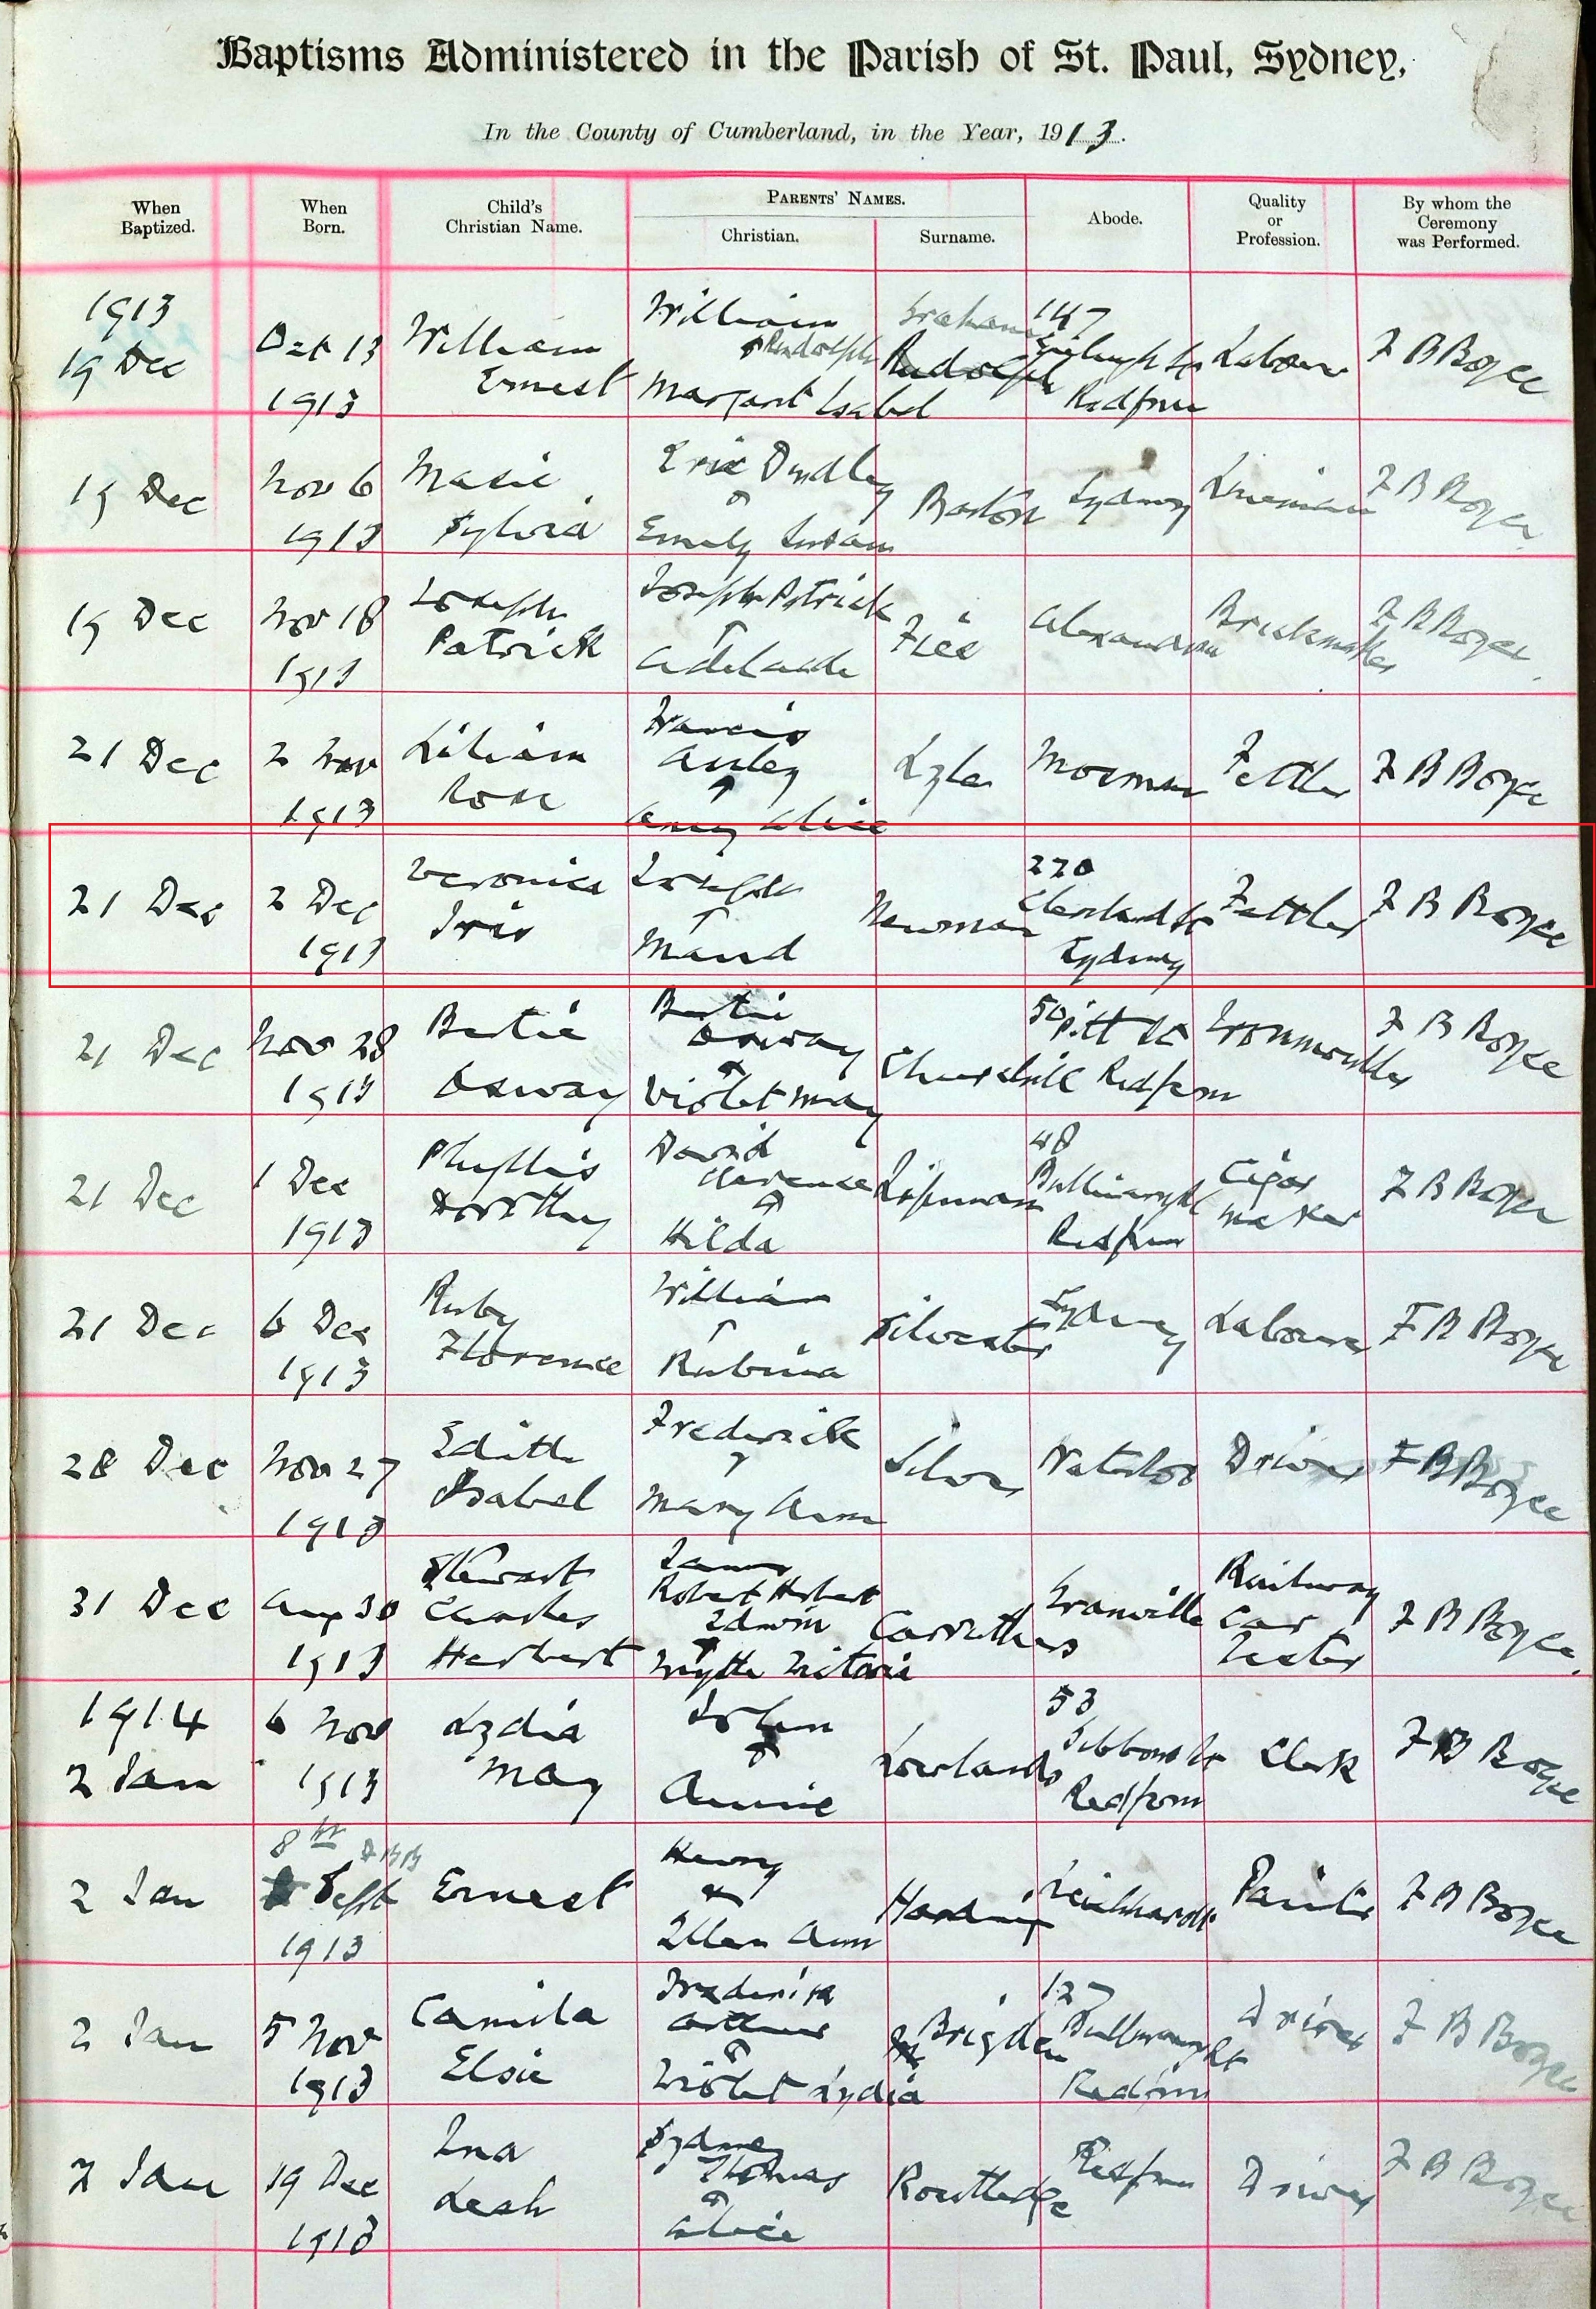 Baptisms Administered in the Parish of St. Paul, Sydney,
In the County of Cumberland, in the Year, 1913.
When Baptized. When Born. Child's Christian Name. PARENTS' NAMES. Christian. Surname. Abode. Quality or Profession. By whom the Ceremony was Performed.
1913
19 Dec Oct 13 1913 William Ernest William Rudolph + Margaret Isabel Graham 147 St Redfern Labourer F B Boyce
19 Dec Nov 6 1913 Masie Sylvia Eric Dudley + Emily Susan Barton Sydney Lineman F B Boyce
19 Dec Nov 18 1913 Joseph Patrick Joseph Patrick + Adelaide Alexandria Brickmaker F B Boyce
21 Dec 2 Nov 1913 Lilian Rose Francis + Amy Alice Fettler F B Boyce
21 Dec 2 Dec 1913 Veronica Iris Joseph + Maud Newman 270 Cleveland St Sydney Fettler F B Boyce
21 Dec Nov 28 1913 Bertie Osway Bertie Osway + Violet May Churchill 50 Pitt St Redfern Ironmoulder F B Boyce
21 Dec 1 Dec 1913 Phyllis Dorothy David Clarence + Hilda Lipman 48 Redfern Cigar Maker F B Boyce
21 Dec 6 Dec 1913 Ruby Florence William + Rubina Silvester Sydney Labourer F B Boyce
28 Dec Nov 27 1913 Edith Isabel Frederick + Mary Ann Silver Waterloo Driver F B Boyce
31 Dec Aug 30 1913 Stewart Charles Herbert James Robert Herbert Edwin + Victoria Carruthers Granville Railway Car F B Boyce
1914
2 Jan 6 Nov 1913 Lydia May John + Annie Rowlands 53 Gibbons St Redfern Clerk F B Boyce
2 Jan 8th FBB Sept 1913 Ernest Henry + Ellen Ann Harding Leichhardt Painter F B Boyce
2 Jan 5 Nov 1913 Camilla Elsie Frederick Arthur + Violet Lydia Brigden 127 St Redfern Driver F B Boyce
2 Jan 19 Dec 1913 Ina Leah Sydney Thomas + Alice Routledge Redfern Driver F B Boyce